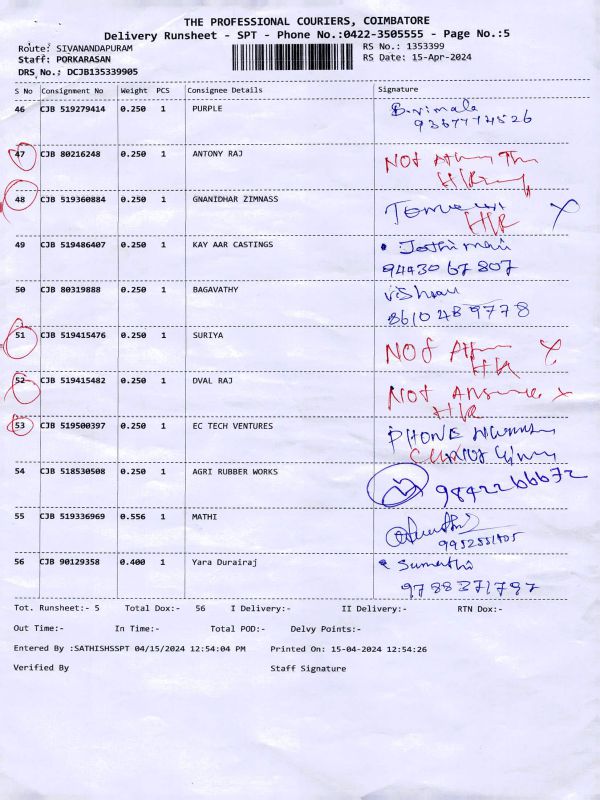 THE PROFESSIONAL COURIERS, COIMBATORE
Delivery Runsheet - SPT - Phone No.:0422-3505555 - Page No.:5
Route: SIVANANDAPURAM RS No.: 1353399
Staff: PORKARASAN RS Date: 15-Apr-2024
DRS No.: DCJB135339905
S No Consignment No Weight PCS Consignee Details Signature
46 CJB 519279414 0.250 1 PURPLE B.vimala
47 CJB 80216248 0.250 1 ANTONY RAJ NOT
48 CJB 519360884 0.250 1 GNANIDHAR ZIMNASS
H/R
49 CJB 519486407 0.250 1 KAY AAR CASTINGS Jothimani
94430 67807
50 CJB 80319888 0.250 1 BAGAVATHY
8610489778
51 CJB 519415476 0.250 1 SURIYA NOT
H/R
52 CJB 519415482 0.250 1 DVAL RAJ NOT
H/R
53 CJB 519500397 0.250 1 EC TECH VENTURES PHONE
54 CJB 518530508 0.250 1 AGRI RUBBER WORKS 9842266672
55 CJB 519336969 0.556 1 MATHI
56 CJB 90129358 0.400 1 Yara Durairaj Sumathi
9788371787
Tot. Runsheet:- 5 Total Dox:- 56 I Delivery:- II Delivery:- RTN Dox:-
Out Time:- In Time:- Total POD:- Delvy Points:-
Entered By :SATHISHSSPT 04/15/2024 12:54:04 PM Printed On: 15-04-2024 12:54:26
Verified By Staff Signature